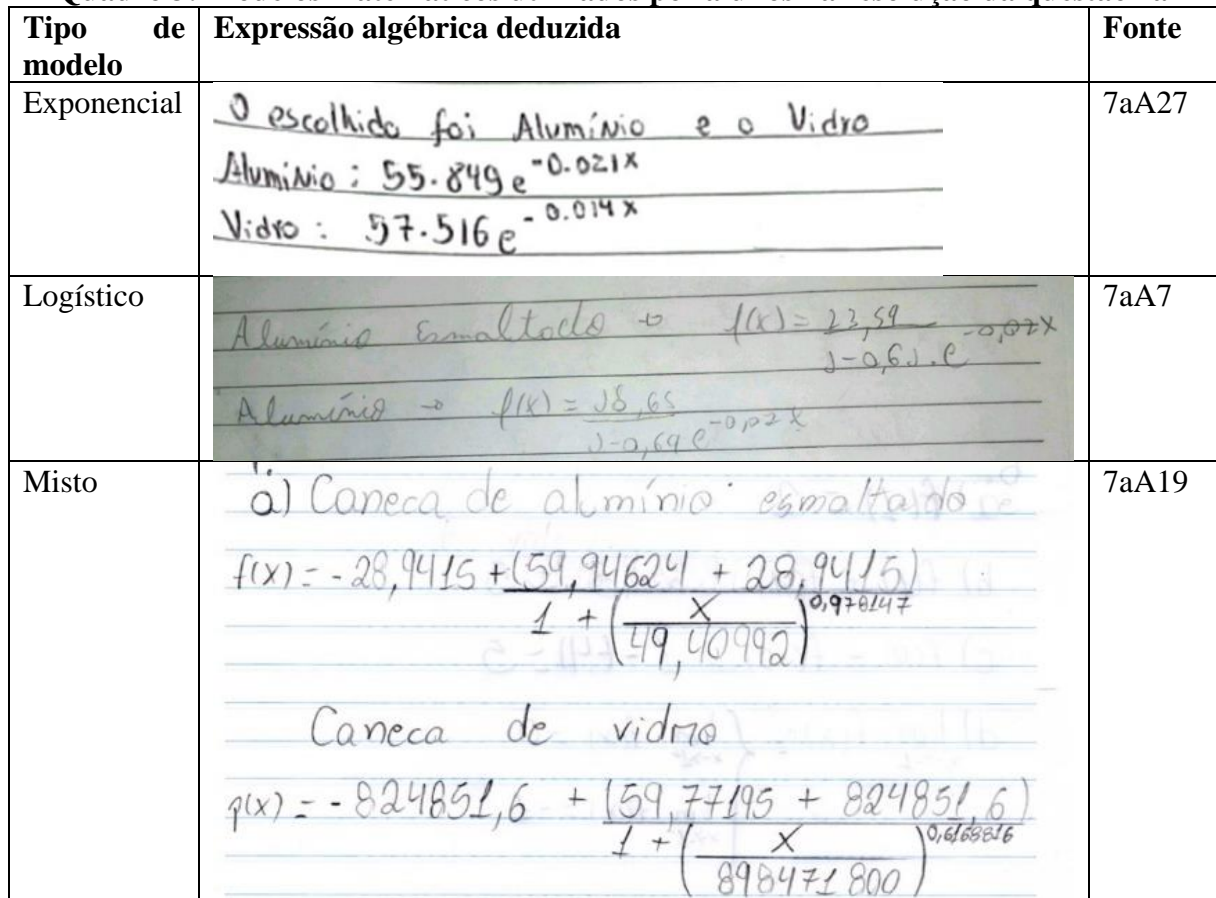 Tipo de modelo | Expressão algébrica deduzida | Fonte
Exponencial
O escolhido foi Alumínio e o Vidro
Alumínio : 55.849 e^-0.021x
Vidro : 57.516 e^-0.014x
7aA27
Logístico
Alumínio Esmaltado → f(x) = 23,59 / 1-0,61.e^-0,02x
Alumínio → f(x) = 18,65 / 1-0,69 e^-0,02x
7aA7
Misto
a) Caneca de alumínio esmaltado
f(x) = -28,9415 + (59,94624 + 28,9415) / 1 + (x / 49,40992)^0,978147
Caneca de vidro
p(x) = -824851,6 + (59,77195 + 824851,6) / 1 + (x / 898471800)^0,6168816
7aA19